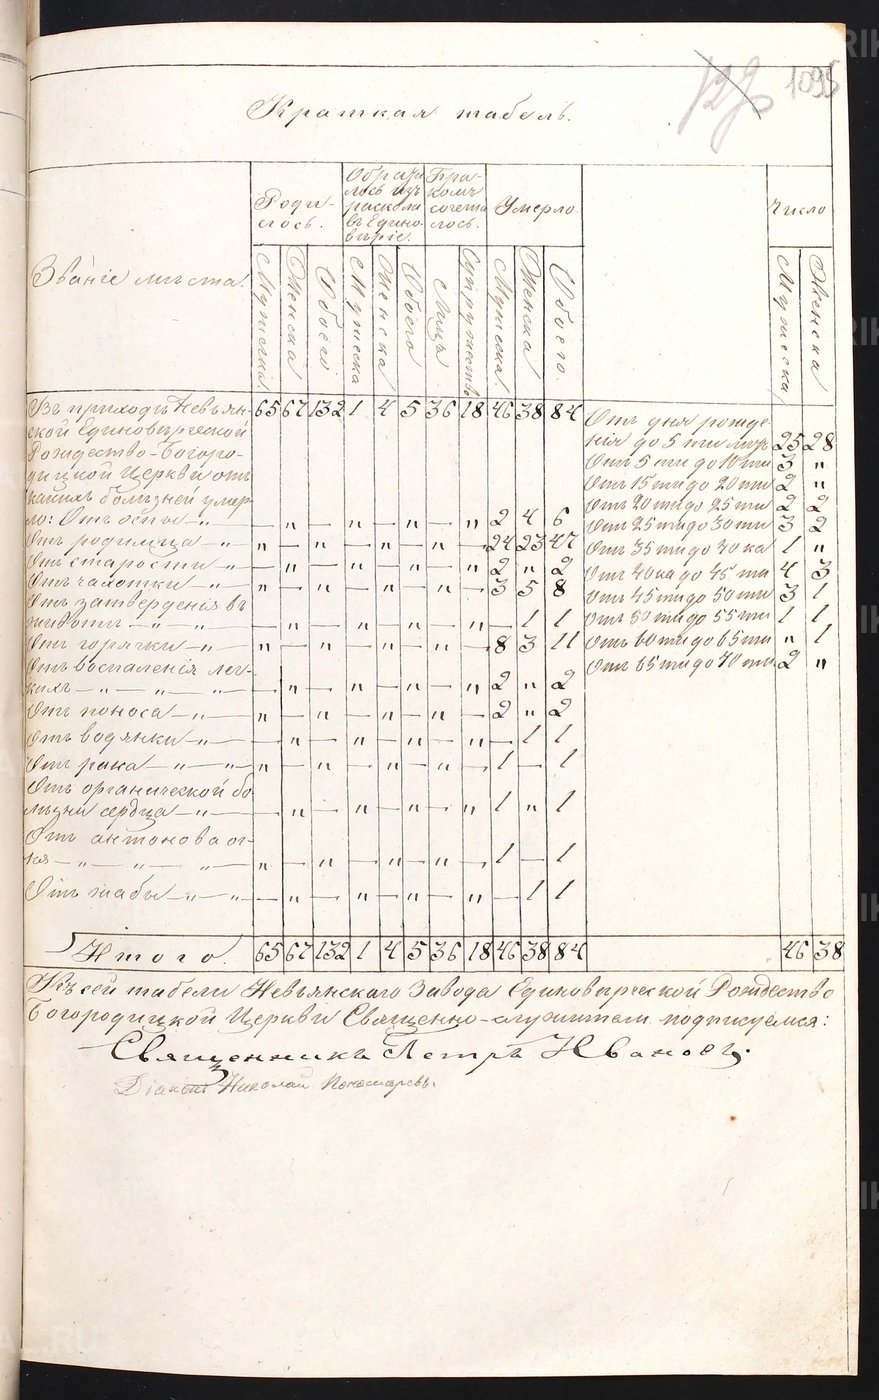 1095
129
Краткая табель.
Званіе мѣста.
Роди-
лось.
Обрати
лось изъ
раскола
въ Едино-
вѣріе.
Бра-
комъ
сочета
лось.
Умерло.
Число
Мужеска
Женска
Обоего
Мужеска
Женска
Обоего
Лицъ
Супружествъ
Мужеска
Женска
Обоего.
Мужеска
Женска
Въ приходѣ Невьян- 65 67 132 1 4 5 36 18 46 38 84
ской Единовѣрческой
Рождество-Богоро-
дицкой Церкви отъ
какихъ болѣзней умер-
ло: Отъ оспы — „ — „ — „ — „ — „ 2 4 6
Отъ родимца — „ — „ — „ — „ — „ — 24 23 47
Отъ старости — „ — „ — „ — „ — „ 2 „ 2
Отъ чахотки — „ — „ — „ — „ — „ — 3 5 8
Отъ затверденія въ
животѣ — „ — „ — „ — „ — „ — „ — „ — 1 1
Отъ горячки — „ — „ — „ — „ — „ — 8 3 11
Отъ воспаленія лег-
кихъ — „ — „ — „ — „ — „ — „ — „ 2 „ 2
Отъ поноса — „ — „ — „ — „ — „ — 2 „ 2
Отъ водянки — „ — „ — „ — „ — „ — 1 1
Отъ рака — „ — „ — „ — „ — „ — „ — 1 — 1
Отъ органической бо
лѣзни сердца — „ — „ — „ — „ — „ 1 „ 1
Отъ антонова ог-
ня — „ — „ — „ — „ — „ — „ — „ — 1 — 1
Отъ жабы — „ — „ — „ — „ — „ — „ — 1 1
Отъ дня рожде-
нія до 5 ти лѣтъ 25 28
Отъ 5 ти до 10 ти 3 „
Отъ 15 ти до 20 ти 2 „
Отъ 20 ти до 25 ти 2 2
Отъ 25 ти до 30 ти 3 2
Отъ 35 ти до 40 ка 1 „
Отъ 40 ка до 45 ти 4 3
Отъ 45 ти до 50 ти 3 1
Отъ 50 ти до 55 ти 1 1
Отъ 60 ти до 65 ти „ 1
Отъ 65 ти до 70 ти 2 „
Итого. 65 67 132 1 4 5 36 18 46 38 84 46 38
Къ сей табели Невьянскаго Завода Единовѣрческой Рождество
Богородицкой Церкви Священно-служители подписуемся:
Священникъ Петръ Ивановъ.
Діаконъ Николай Пономаревъ.